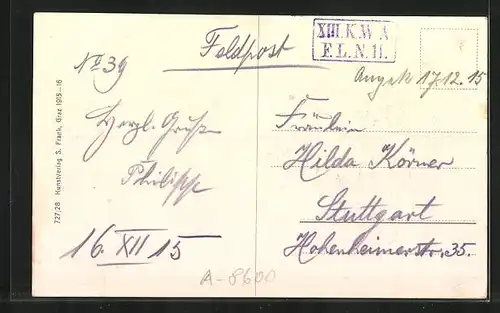 No 39
Feldpost
XIII. K.W A
F. L. N. 11.
Angek. 17.12.15
Herzl. Grüße
Philipp
16. XII 15
Fräulein
Hilda Körner
Stuttgart
Hohenheimerstr. 35.
727/28 Kunstverlag S. Frank, Graz 1915—16
A-8600